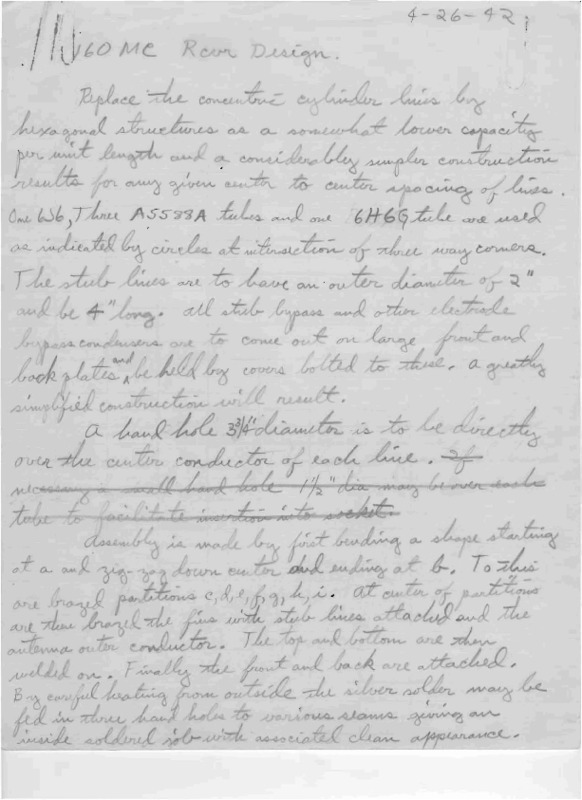 4-26-42
160 MC Rcvr Design.
Replace the concentric cylinder lines by
hexagonal structures as a somewhat lower capacity
per unit length and a considerably simpler construction
results for any given center to center spacing of lines.
One 6J6, Three A5588A tubes and one 6H6G tube are used
as indicated by circles at intersection of three way corners.
The stub lines are to have an outer diameter of 2"
and be 4" long. All stub bypass and other electrode
bypass condensers are to come out on large front and
back plates and be held by covers bolted to these. A greatly
simplified construction will result.
A hand hole 3¾" diameter is to be directly
over the center conductor of each line. If
necessary a small hand hole 1½" dia may be over each
tube to facilitate insertion into socket.
Assembly is made by first bending a shape starting
at a and zig-zag down center and ending at b. To this
are brazed partitions c, d, e, f, g, h, i. At center of partitions
are then brazed the fins with stub lines attached and the
antenna outer conductor. The top and bottom are then
welded on. Finally the front and back are attached.
By careful heating from outside the silver solder may be
fed in three hand holes to various seams giving an
inside soldered job with associated clean appearance.